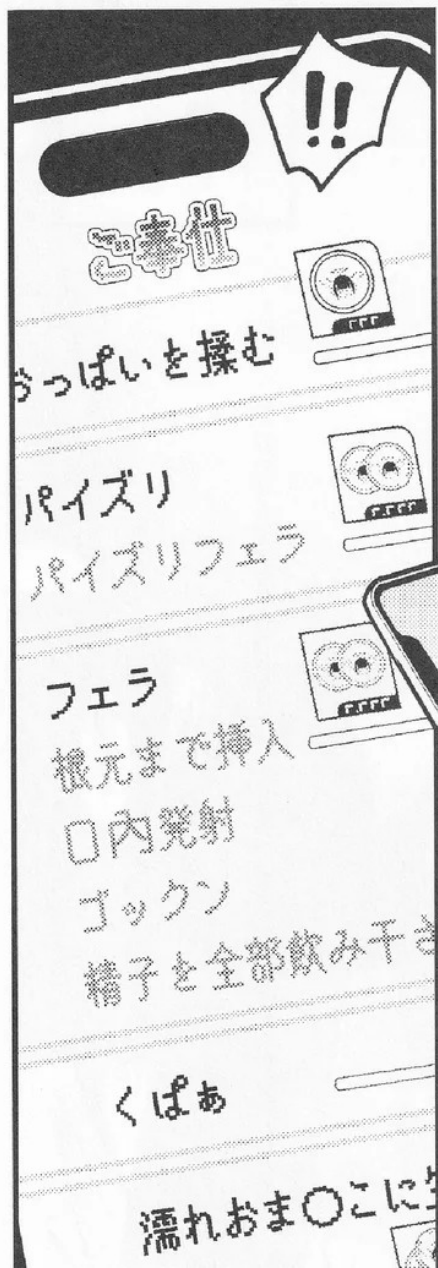 !!
ご奉仕
おっぱいを揉む
パイズリ
パイズリフェラ
フェラ
根元まで挿入
口内発射
ゴックン
精子を全部飲み干さ
くぱぁ
濡れおま〇こに